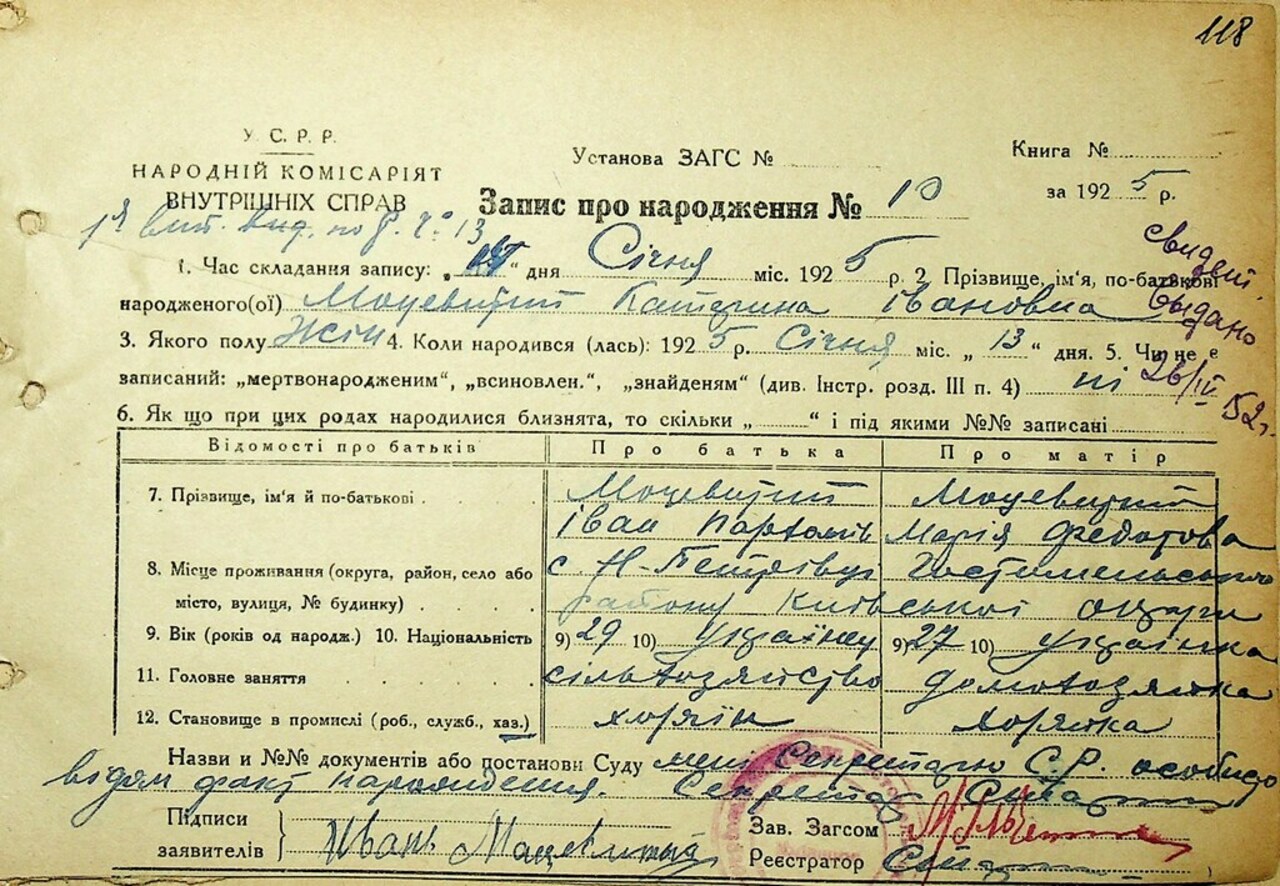 118
У. С. Р. Р.
НАРОДНІЙ КОМІСАРІЯТ
ВНУТРІШНІХ СПРАВ
Установа ЗАГС №
Книга №
Запис про народження № 10
за 1925 р.
вид. по
13
1. Час складання запису: „ “ дня Січня міс. 1925 р. 2. Прізвище, ім'я, по-батькові
народженого(ої) Моцевитий Катерина Івановна
свидет.
выдано
26/IV 52г.
3. Якого полу Жін 4. Коли народився (лась): 1925 р. Січня міс. „ 13 “ дня. 5. Чи не є
записаний: „мертвонародженим“, „всиновлен.“, „знайденям“ (див. Інстр. розд. III п. 4) ні
6. Як що при цих родах народилися близнята, то скільки „ “ і під якими №№ записані
Відомості про батьків Про батька Про матір
7. Прізвище, ім'я й по-батькові Моцевитий Моцевитий
Іван Пархомів Марія Федотова
8. Місце проживання (округа, район, село або с. Н-Петрівці Гостомельського
місто, вулиця, № будинку) району Київської округи
9. Вік (років од народж.) 10. Національність 9) 29 10) Українец 9) 27 10) Українка
11. Головне заняття сільхозяйство домохозяйка
12. Становище в промислі (роб., служб., хаз.)
Назви и №№ документів або постанови Суду мені Секретарю С.Р. особисто
відом факт народження. Секретар
Підписи
заявителів Иванъ Мацевитый
Зав. Загсом
Реєстратор